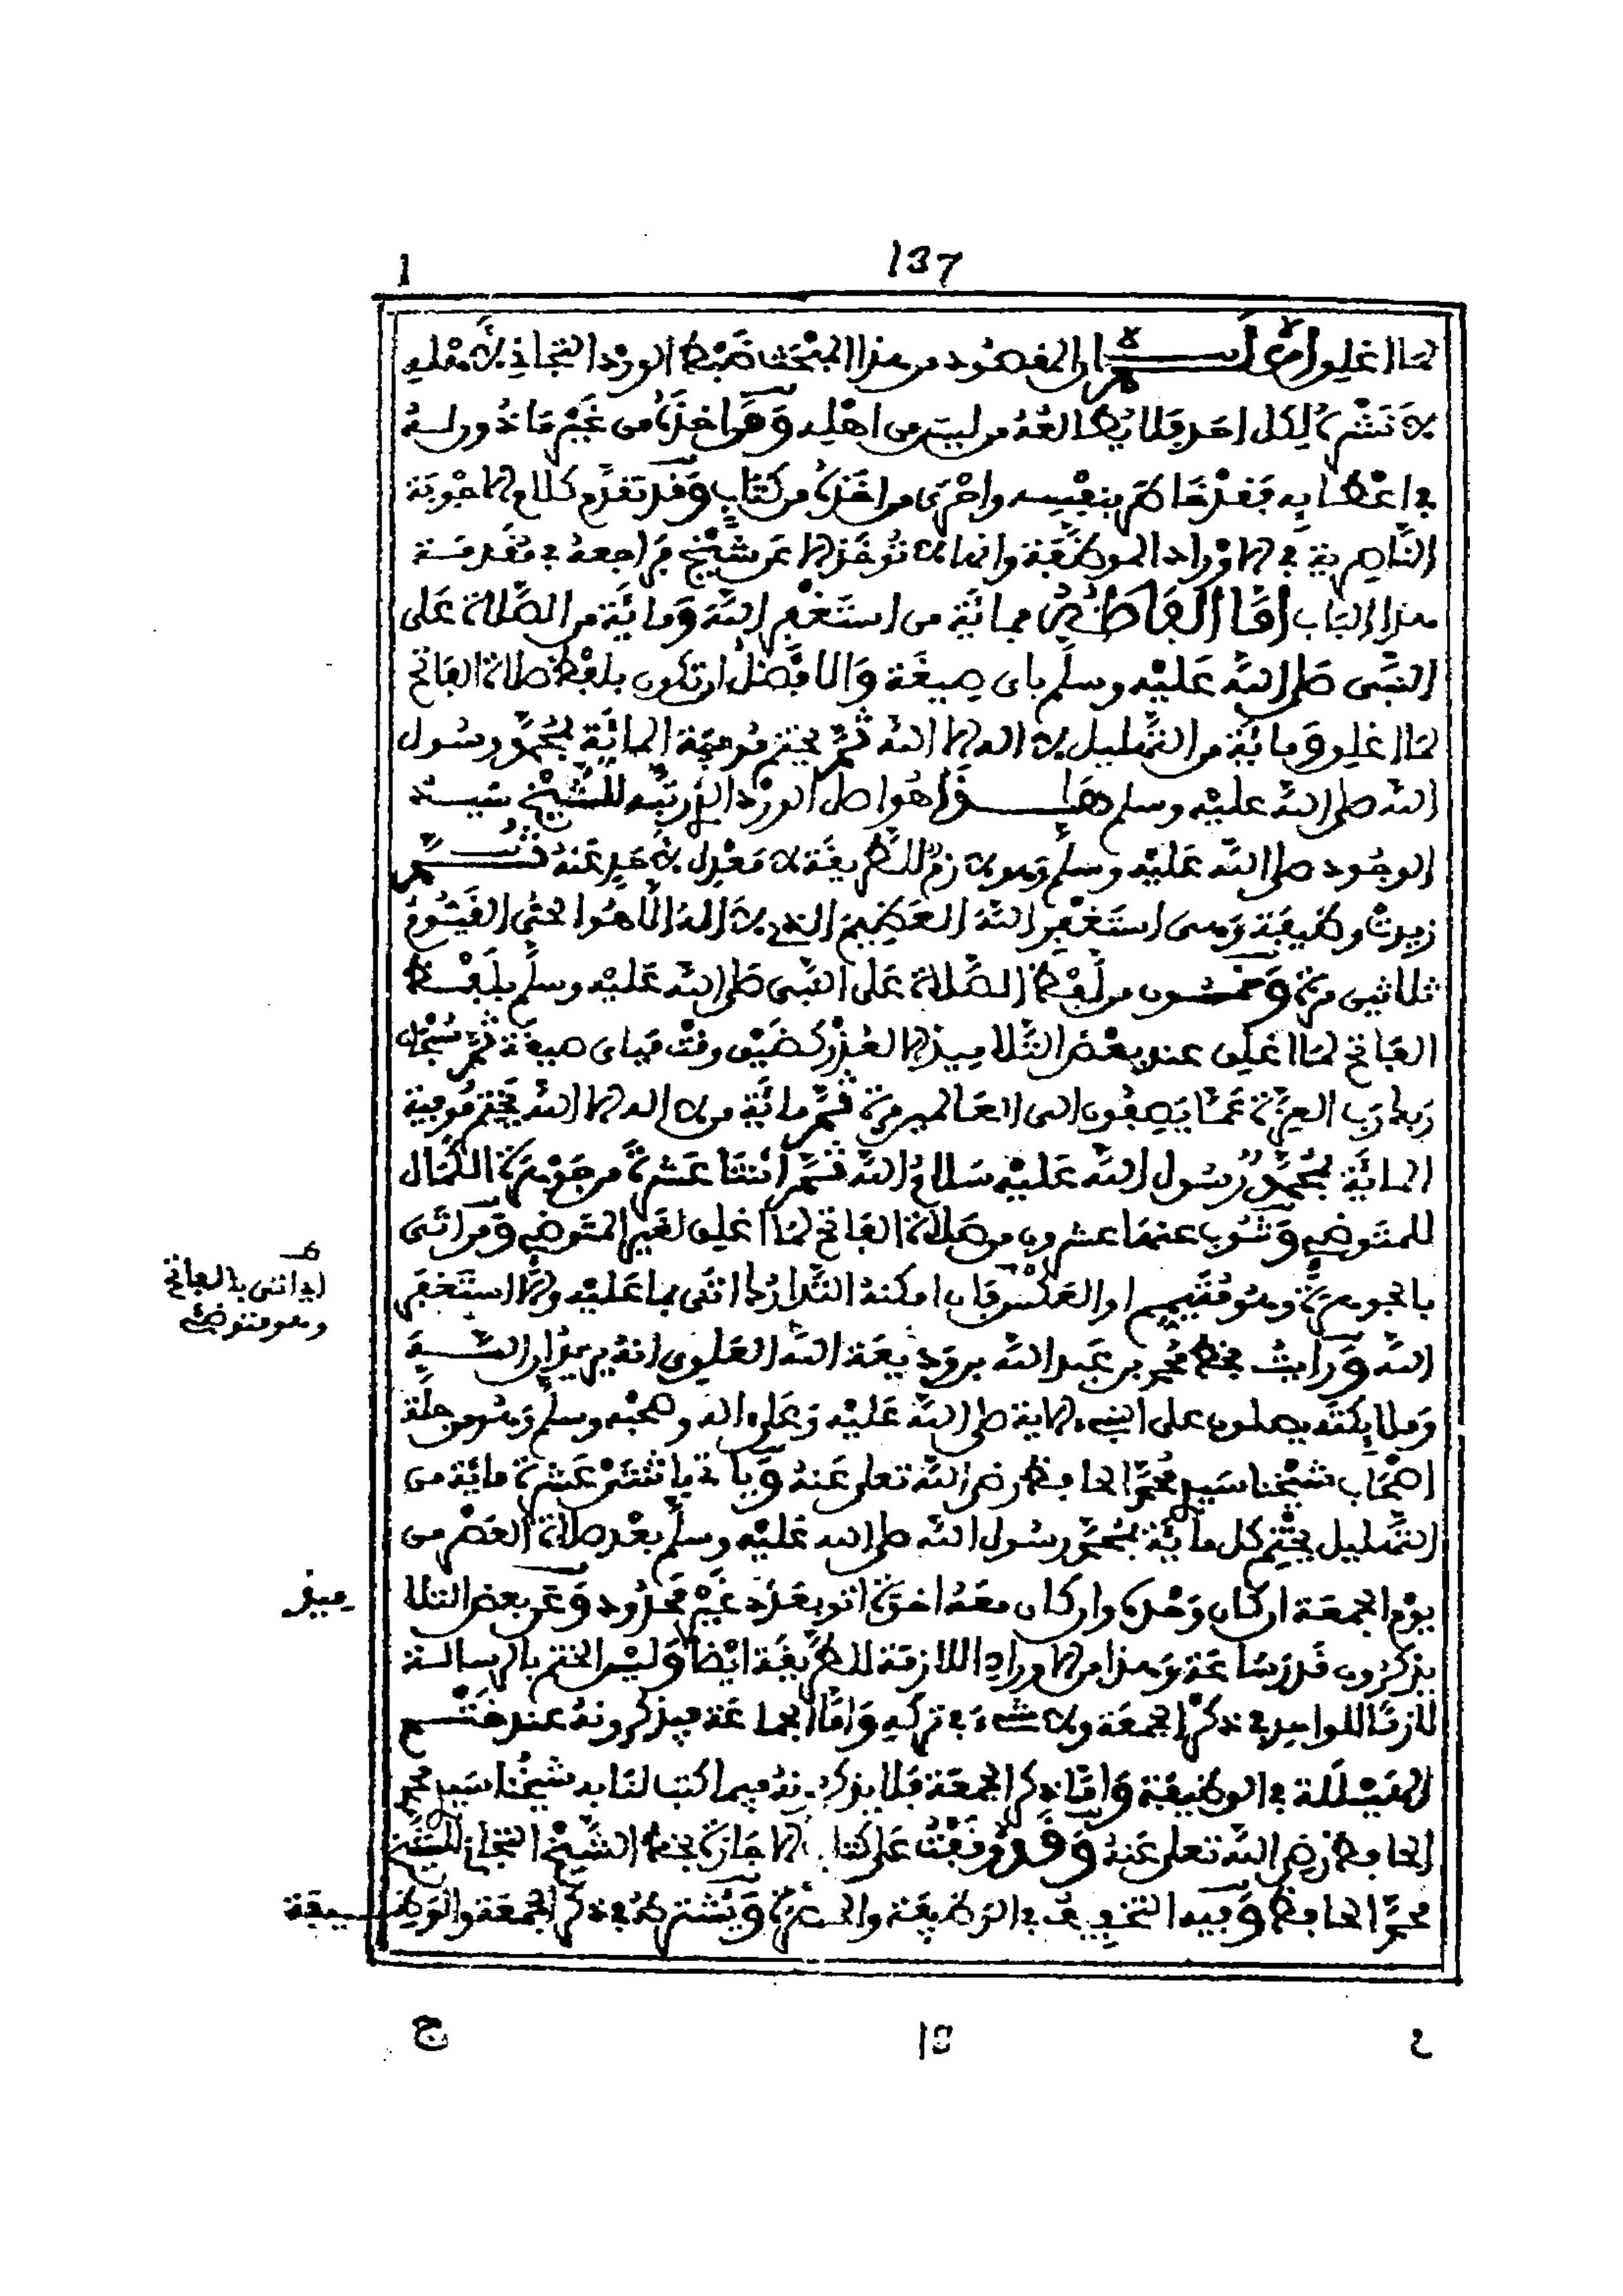 137 1
لما اغلق ان المقصود من هذا المبحث ضبط الورد التجاني لأهله
لا نشره لكل احد فلا يطالعه من ليس من اهله وَمَن اخذه من غير ماذون له
في اعطائه فقد خاطر بنفسه واحرى من اخذه من كتاب وَقد تقدم كلام الاجوبة
النّاصرية في الاوراد الموظّفة وانها لا تُوخذ الا عن شيخ فراجعه في مقدمة
هذا الباب امَّا الفاظه فمائة من استغفر الله وَمائة من الصّلاة على
النّبى صلى الله عليه وسلم باى صيغة وَالافضل ان تكون بلفظ صلاة الفاتح
لما اغلق وَمائة من التهليل لا اله الا الله ثم يختم موفية المائة بمحمّد رسول
الله صلى الله عليه وسلم هذا هو اصل الورد الذى رتبه للشيخ سيد
الوجود صلى الله عليه وسلم وهو لازم للطريقة لا معدل لأحد عنه ثم
زيدت وظيفة وهى استغفر الله العظيم الذى لا اله الا هو الحى القيوم
ثلاثين مرة وَخمسون من لفظ الصّلاة على النّبى صلى الله عليه وسلم بلفظ
الفاتح لما اغلق عند بعض التلاميذ الا لعذر كضيق وقت فباى صيغة ثم سبحان
ربك رب العزة عما يصفون الى العالمين مرة ثم مائة من لا اله الا الله يختم موفية
المائة بمحمّد رسول الله عليه سلام الله ثم اثنتا عشرة من جوهرة الكمال
للمتوضئ وَتنوب عنها عشرون من صلاة الفاتح لما اغلق لغير المتوضئ وَمن اتى
بالجوهرة وهو متيمم او العكس فان امكنه التدارك اتى بما عليه والا استغفر
الله وَرايت بخط محمد بن عبد الله بن وديعة الله العلوى انه يزيد ان الله
وملائكته يصلون على النبى الاية صلى الله عليه وَعلى اله وصحبه وسلم وهو من جلة
اصحاب شيخنا سيدى محمد الحافظ رضى الله تعلى عنه وَياتى باثنتى عشرة مائة من
التهليل يختم كل مائة بمحمد رسول الله صلى الله عليه وسلم بعد صلاة العصر من
يوم الجمعة ان كان وحده وان كان معه اخوة اتوا بعدد غير محدود وَعن بعض التلا
يذكرون قدر ساعة وهذا من الاوراد اللازمة للطريقة ايضا وَليس الختم بالرسالة
لازما للواحد في ذكر الجمعة ولا شىء في تركه وَامّا الجماعة فيذكرونه عند ختم
الهيللة في الوظيفة وَامّا ذكر الجمعة فلا يذكرونه فيما كتب لنا به شيخنا سيدى محمد
الحافظ رضى الله تعلى عنه وَقد وقفت على كتاب الاجازة بخط الشيخ التجانى للشيخ
محمد الحافظ وَفيه التخفيف في الوظيفة والحضرة وَيشترط في ذكر الجمعة والوظيفة
اى اتى بالفاتح
وهو متوضئ
ميذ
ج 18